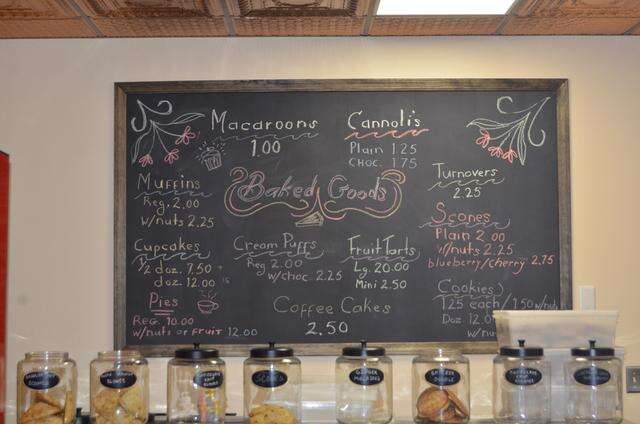 Macaroons
1.00
Cannoli's
Plain 1.25
Choc. 1.75
Turnovers
2.25
Baked Goods
Muffins
Reg. 2.00
w/nuts 2.25
Scones
Plain 2.00
w/nuts 2.25
blueberry/cherry 2.75
Cupcakes
1/2 doz. 7.50
doz. 12.00
Cream Puffs
Reg 2.00
w/choc. 2.25
Fruit Tarts
Lg. 20.00
Mini 2.50
Cookies
1.25 each/1.50 w/nuts
Doz 12.0
w/nu
Pies
Reg. 10.00
w/nuts or fruit 12.00
Coffee Cakes
2.50
SCONES
GINGER